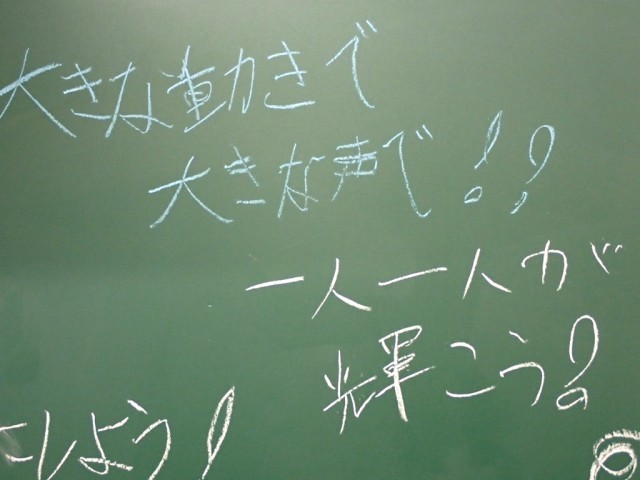 大きな動きで
大きな声で!!
一人一人が
輝こう!
にしよう!